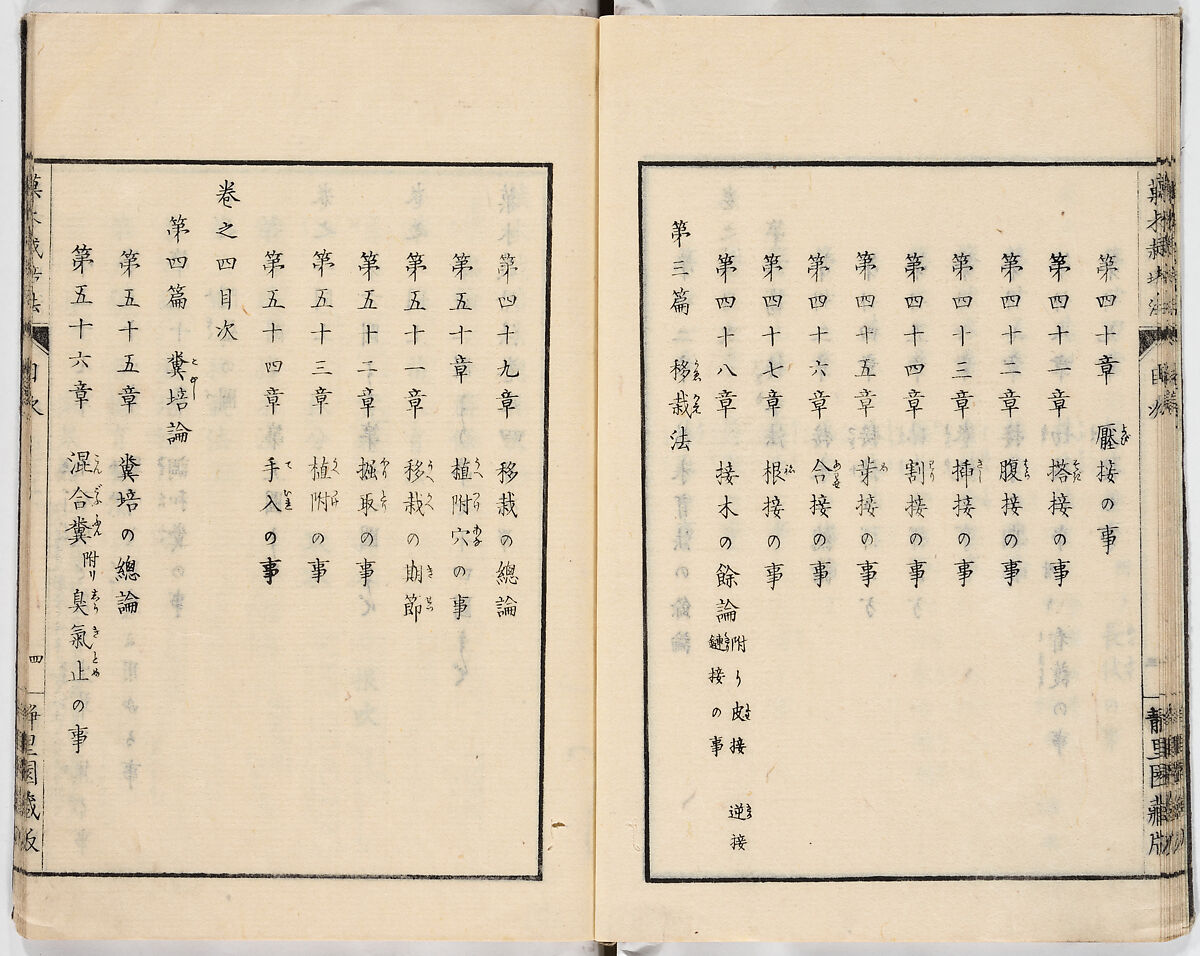 第四十章　壓接の事
第四十一章　搭接の事
第四十二章　腹接の事
第四十三章　挿接の事
第四十四章　割接の事
第四十五章　芽接の事
第四十六章　合接の事
第四十七章　根接の事
第四十八章　接木の餘論　附り皮接　逆接
鏈接の事
第三篇　移栽法
第四十九章　移栽の總論
第五十章　植附穴の事
第五十一章　移栽の期節
第五十二章　掘取の事
第五十三章　植附の事
第五十四章　手入の事
巻之四目次
第四篇　糞培論
第五十五章　糞培の總論
第五十六章　混合糞附リ臭氣止の事
目次
四
静里園蔵版